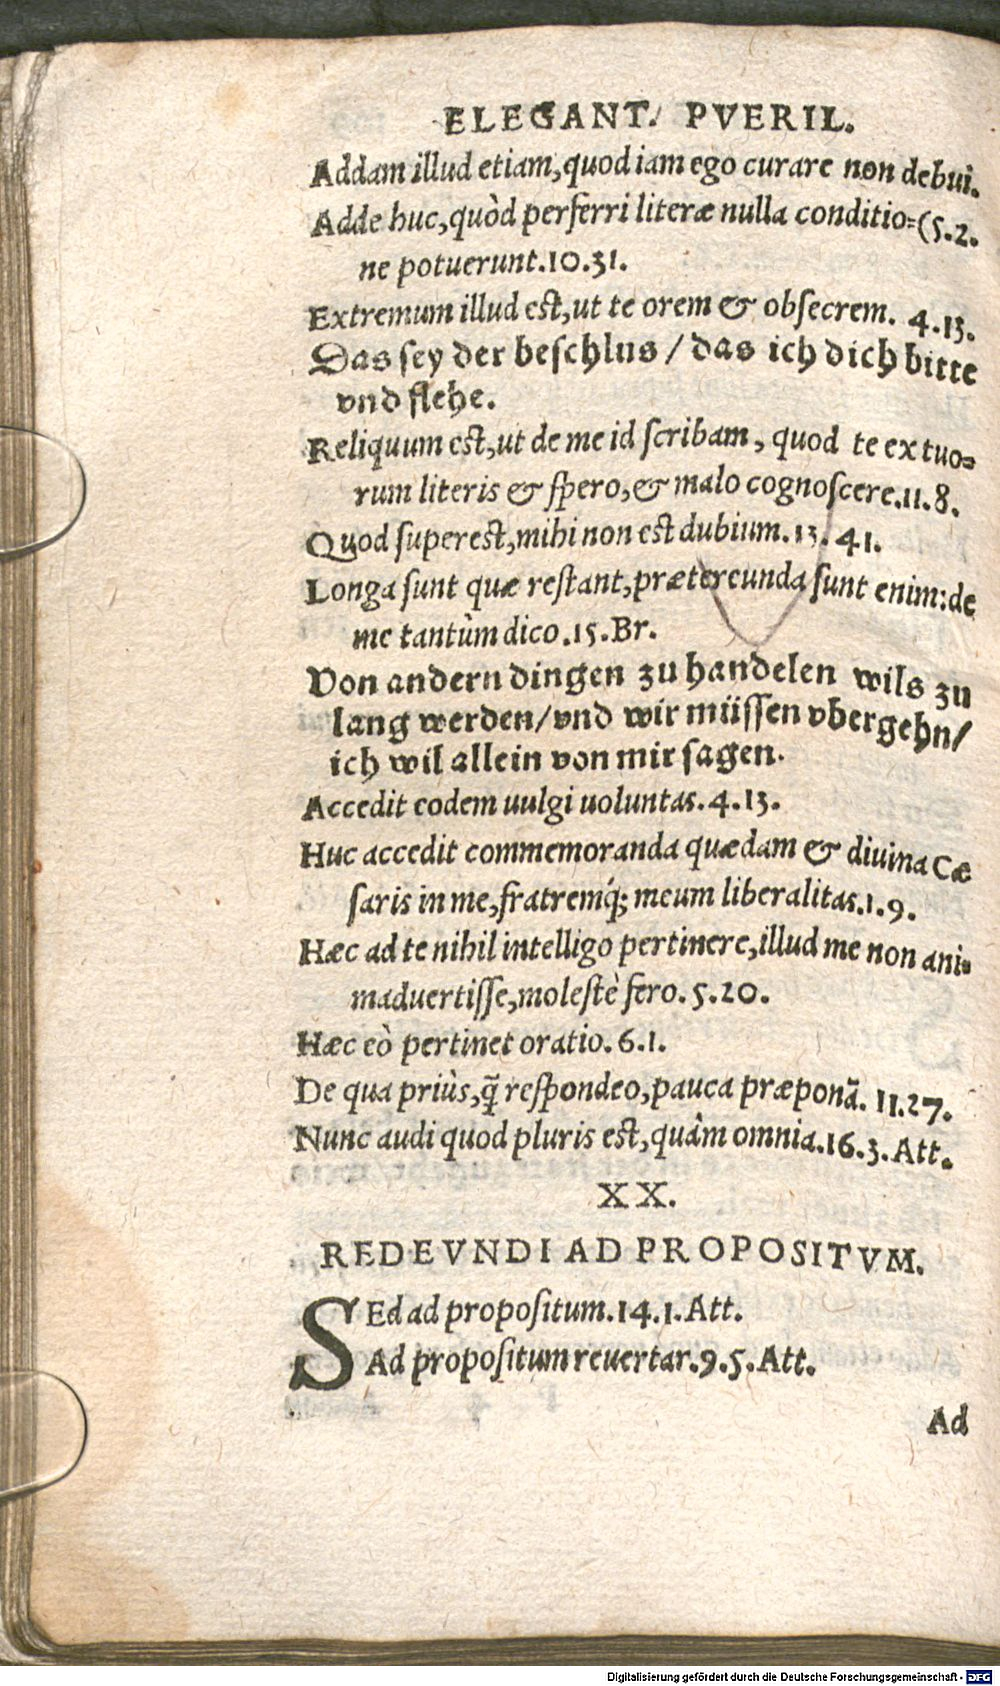 ELEGANT. PVERIL.
Addam illud etiam, quod iam ego curare non debui.
Adde huc, quòd perferri literæ nulla conditio= (5.2.
ne potuerunt. 10. 31.
Extremum illud est, ut te orem & obsecrem. 4. 13.
Das sey der beschlus / das ich dich bitte
vnd flehe.
Reliquum est, ut de me id scribam, quod te ex tuo=
rum literis & spero, & malo cognoscere. 11. 8.
Quod superest, mihi non est dubium. 13. 41.
Longa sunt quæ restant, prætereunda sunt enim: de
me tantùm dico. 15. Br.
Von andern dingen zu handelen wils zu
lang werden / vnd wir müssen vbergehn /
ich wil allein von mir sagen.
Accedit eodem uulgi uoluntas. 4. 13.
Huc accedit commemoranda quædam & diuina Cæ
saris in me, fratremq́; meum liberalitas. 1. 9.
Hæc ad te nihil intelligo pertinere, illud me non ani=
maduertisse, molestè fero. 5. 20.
Hæc eò pertinet oratio. 6. 1.
De qua priùs, q̃ respondeo, pauca præponã. 11. 27.
Nunc audi quod pluris est, quàm omnia. 16. 3. Att.
XX.
REDEVNDI AD PROPOSITVM.
SEd ad propositum. 14. 1. Att.
Ad propositum reuertar. 9. 5. Att.
Ad
Digitalisierung gefördert durch die Deutsche Forschungsgemeinschaft - DFG